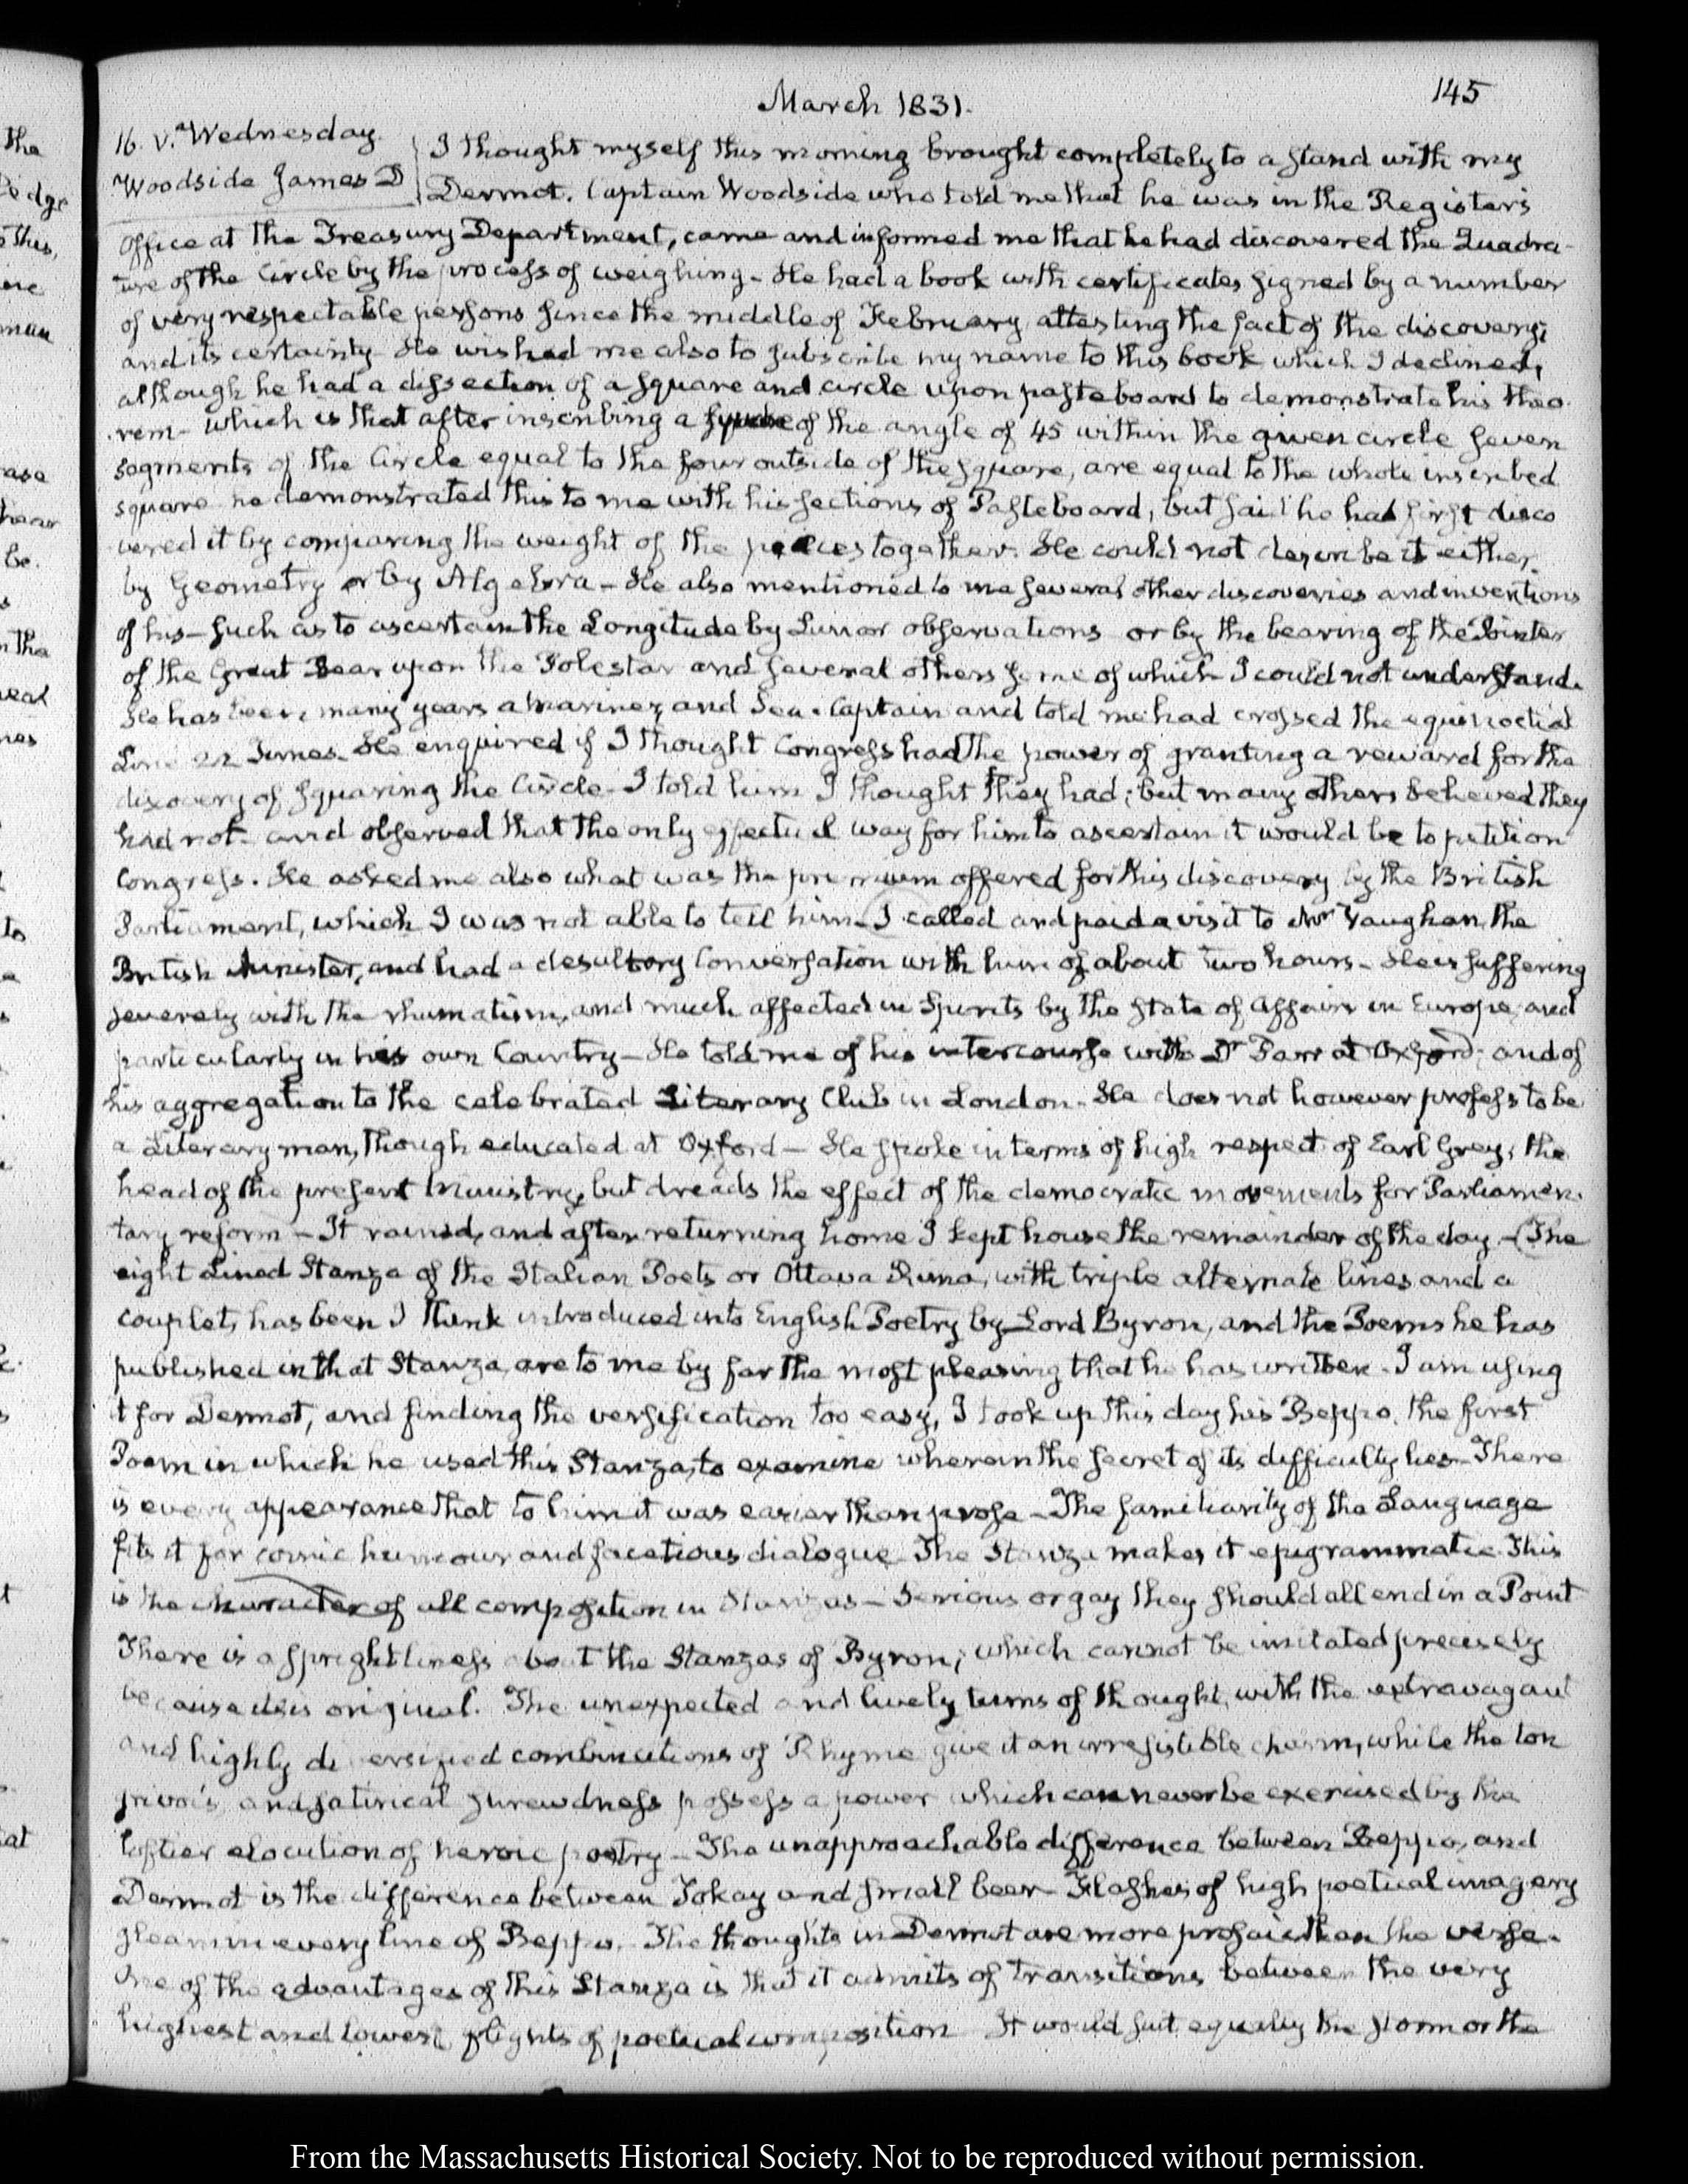 March 1831.
145
16. V. Wednesday.
Woodside James D
I thought myself this morning brought completely to a stand with my
Dermot. Captain Woodside who told me that he was in the Register's
Office at the Treasury Department, came and informed me that he had discovered the Quadra-
ture of the Circle by the process of weighing - He had a book with certificates signed by a number
of very respectable persons since the middle of February attesting the fact of the discovery;
and its certainty He wished me also to subscribe my name to this book which I declined,
although he had a dissection of a square and circle upon pasteboard to demonstrate his theo-
rem - which is that after inscribing a square of the angle of 45 within the given circle seven
segments of the Circle equal to the four outside of the square, are equal to the whole inscribed
square he demonstrated this to me with his sections of Pasteboard, but said he had first disco
vered it by comparing the weight of the pieces together. He could not describe it either
by Geometry or by Algebra - He also mentioned to me several other discoveries and inventions
of his - such as to ascertain the Longitude by Lunar observations or by the bearing of the Pointer
of the Great Bear upon the Polestar and several others some of which I could not understand.
He has been many years a mariner and Sea-Captain and told me had crossed the equinoctial
Line 22 Times. He enquired if I thought Congress had the power of granting a reward for the
discovery of squaring the Circle - I told him I thought they had; but many others believed they
had not - and observed that the only effectual way for him to ascertain it would be to petition
Congress. He asked me also what was the premium offered for this discovery by the British
Parliament, which I was not able to tell him - I called and paid a visit to Mr Vaughan the
British Minister, and had a desultory Conversation with him of about two hours - He is suffering
severely with the rhumatism, and much affected in Spirits by the state of affairs in Europe, and
particularly in his own Country - He told me of his intercourse with Dr Parr at Oxford; and of
his aggregation to the celebrated Literary Club in London. He does not however profess to be
a Literary man, though educated at Oxford - He spoke in terms of high respect of Earl Grey, the
head of the present Ministry, but dreads the effect of the democratic movements for Parliamen-
tary reform - It rained, and after returning home I kept house the remainder of the day. - (The
eight Lined Stanza of the Italian Poets or Ottava Rima, with triple alternate lines and a
couplet, has been I think introduced into English Poetry by Lord Byron, and the Poems he has
published in that Stanza, are to me by far the most pleasing that he has written - I am using
it for Dermot, and finding the versification too easy, I took up this day his Beppo, the first
Poem in which he used this Stanza, to examine wherein the secret of its difficulty lies - There
is every appearance that to him it was easier than prose - The familiarity of the Language
fits it for comic humour and facetious dialogue The Stanza makes it epigrammatic This
is the character of all composition in Stanzas - Serious or gay they should all end in a Point
There is a sprightliness about the Stanzas of Byron; which cannot be imitated precisely
because it is original. The unexpected and lively turns of thought, with the extravagant
and highly diversified combinations of Rhyme give it an irresistible charm, while the ton
grivois and satirical shrewdness possess a power which can never be exercised by the
loftier elocution of heroic poetry - The unapproachable difference between Beppo, and
Dermot is the difference between Tokay and small beer - Flashes of high poetical imagery
gleam in every line of Beppo. The thoughts in Dermot are more prosaic than the verse.
One of the advantages of this Stanza is that it admits of transitions between the very
highest and lowest flights of poetical composition It would suit equally the or the
From the Massachusetts Historical Society. Not to be reproduced without permission.